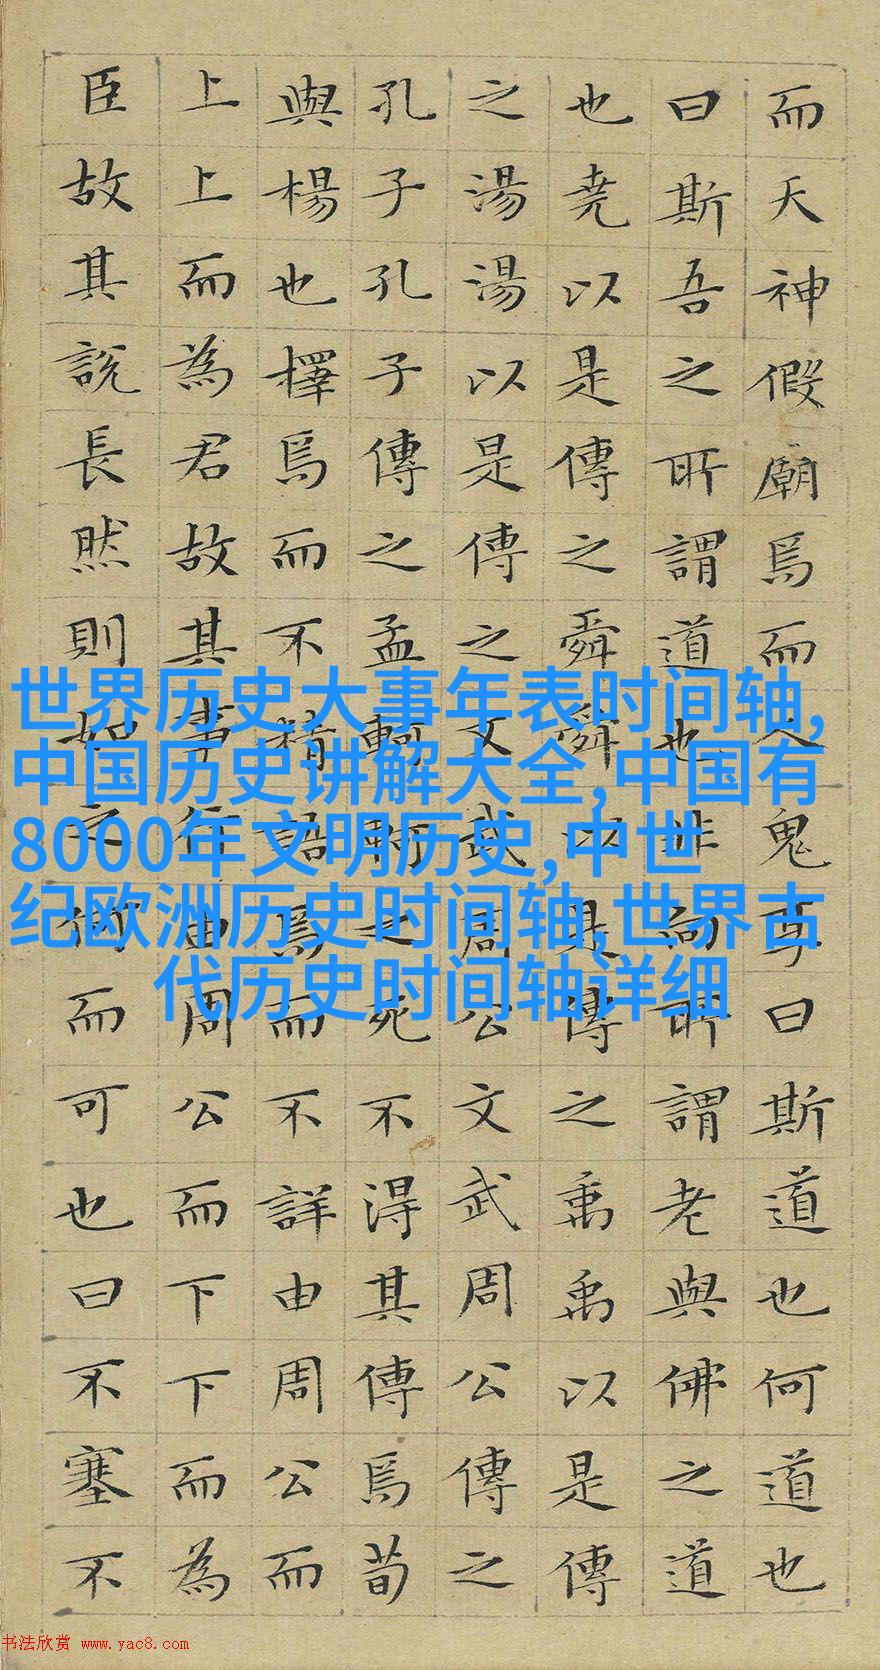 而天神假廟焉而人鬼享曰斯道也何道也
曰斯吾之所謂道也非向所謂老與佛之道
也堯以是傳之舜舜以是傳之禹禹以是傳
之湯湯以是傳之文武周公文武周公傳之
孔子孔子傳之孟軻軻之死不得其傳焉荀
與楊也擇焉而不精語焉而不詳由周公而
上上而為君故其事行由周公而下下而為
臣故其說長然則如之何而可也曰不塞不
世界历史大事年表时间轴,
中国历史讲解大全,中国有
8000年文明历史,中世
纪欧洲历史时间轴,世界古
代历史时间轴详细
书法欣赏 www.yac8.com